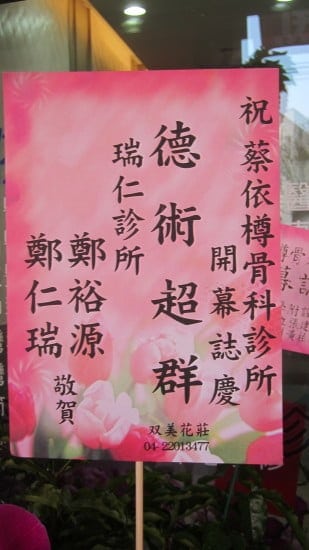 祝蔡依樽骨科診所
開幕誌慶
德術超群
瑞仁診所
鄭裕源
鄭仁瑞
敬賀
双美花莊
04-22013477